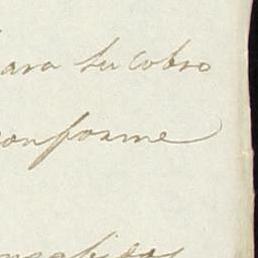 ara su cobro
conforme